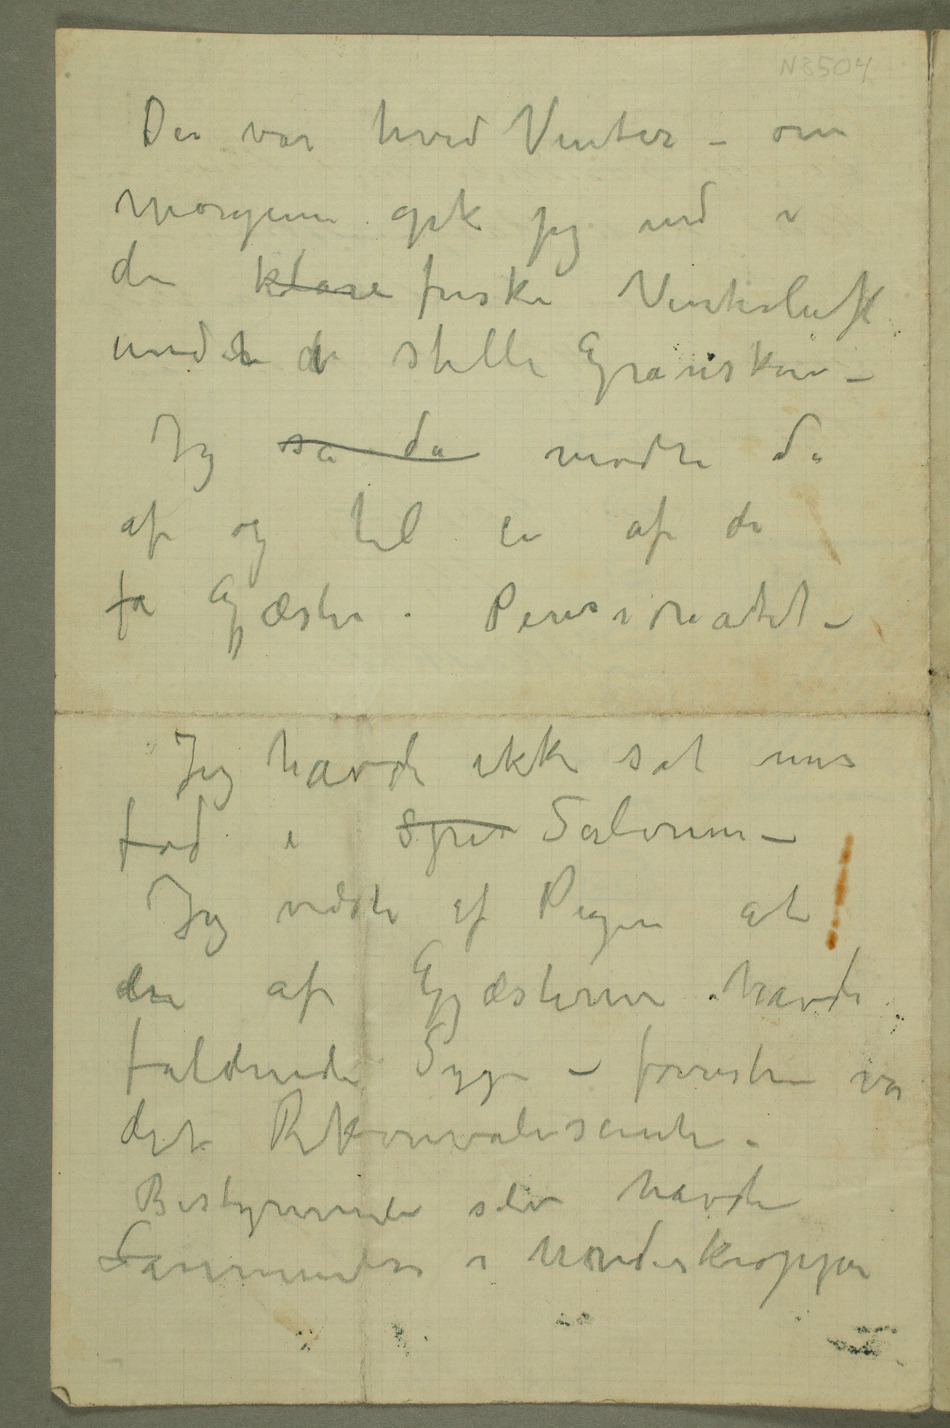 N 3504
Det var hvid Vinter – om
morgenen gik jeg ud i
den klare friske Vinterluft
under de stille Granskove –
Jeg sa da mødte da
af og til en af de
få Gjæster i Pensionatet –
Jeg havde ikke sat min
fod i Spis Salonen –
Jeg vidste af Pigen at
en af Gjæsterne havde
faldende Syge – forresten var
det Rekonvalescenter.
Bestyrerinden selv havde
Lammelse i Underkroppen